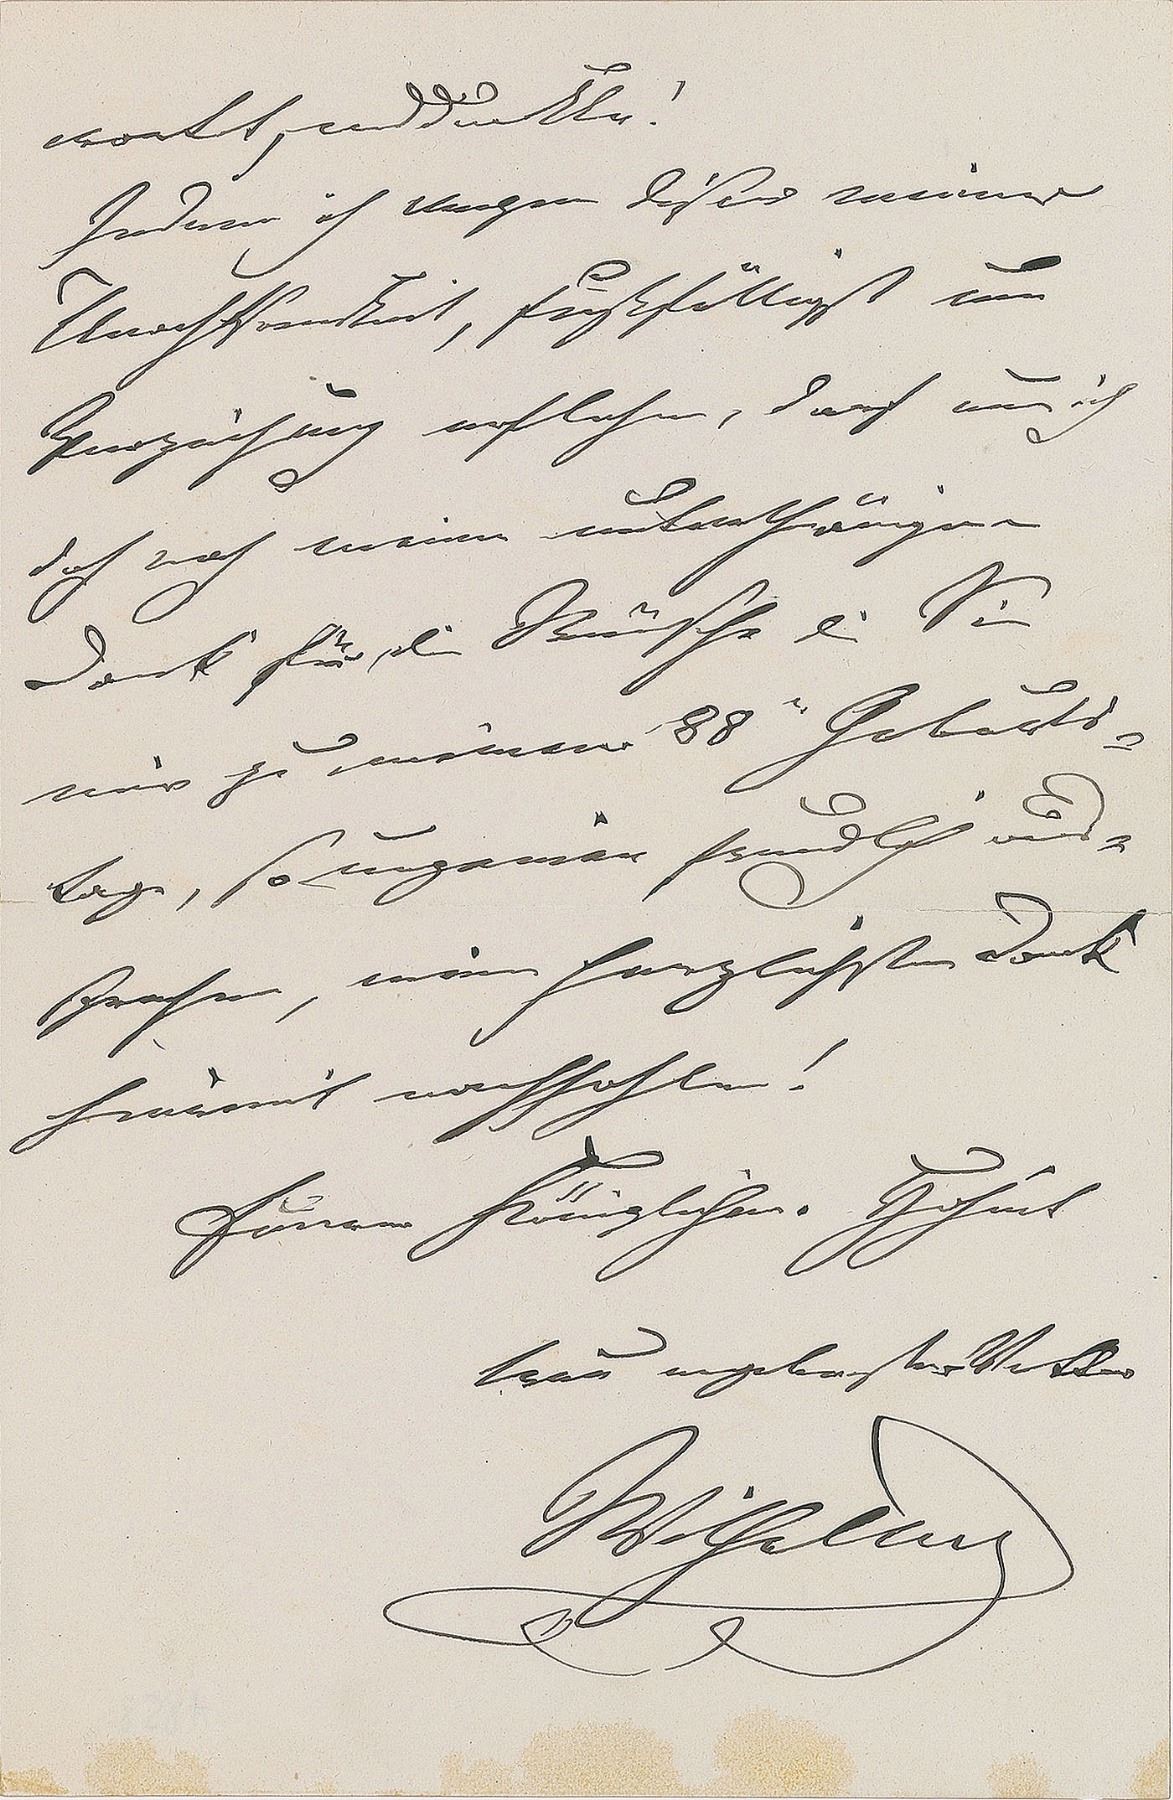 Indem ich wegen dieser meiner
Unachtsamkeit, fußfälligst um
Verzeihung erflehe, darf um ich
doch noch meinen unterthänigen
Dank für die Wünsche die Sie
mir zu meinem 88n Geburts-
tage, so ungemein freundlich aus-
sprachen, meinen herzlichsten Dank
hiermit nachhohlen!
Euerer Königlichen Hoheit
treu ergebenster Vetter
Wilhelm